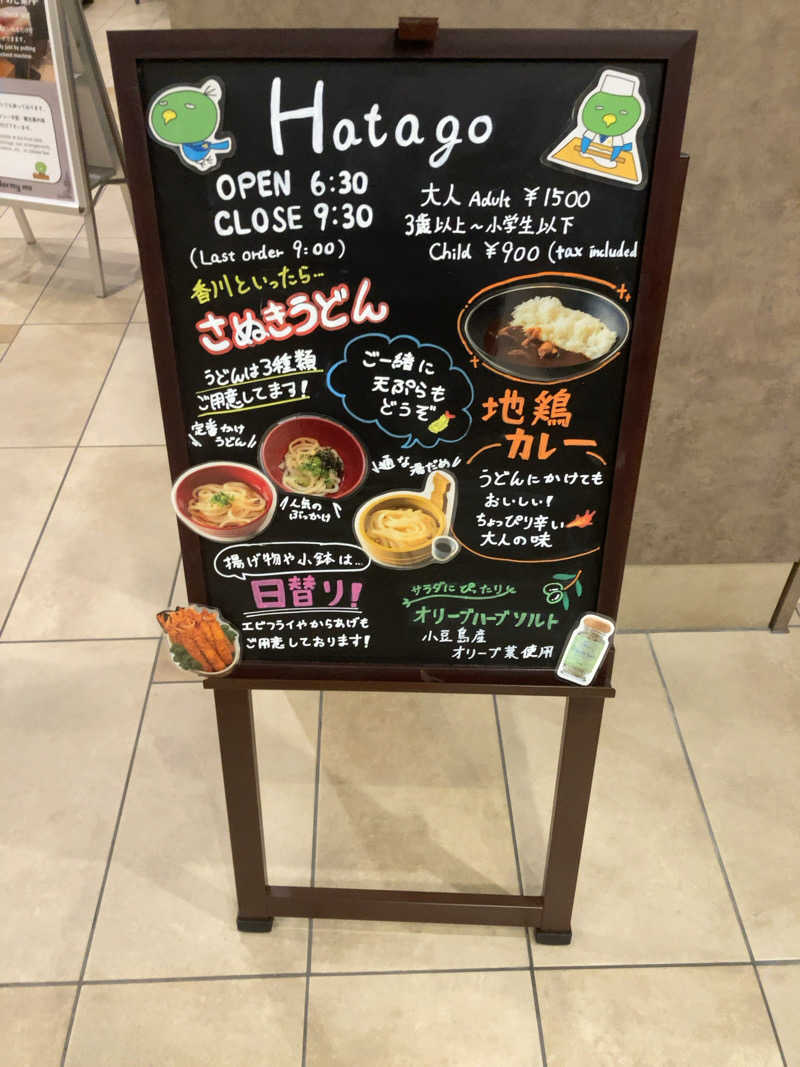 Hatago
OPEN 6:30
CLOSE 9:30
(Last order 9:00)
大人 Adult ¥1500
3歳以上～小学生以下
Child ¥900 (tax included
香川といったら…
さぬきうどん
うどんは3種類
ご用意してます!
ご一緒に
天ぷらも
どうぞ
定番かけ
うどん
人気の
ぶっかけ
通な湯だめ
地鶏
カレー
うどんにかけても
おいしい!
ちょっぴり辛い
大人の味
揚げ物や小鉢は…
日替り!
エビフライやからあげも
ご用意しております!
サラダにぴったり
オリーブハーブソルト
小豆島産
オリーブ葉使用
dormy inn